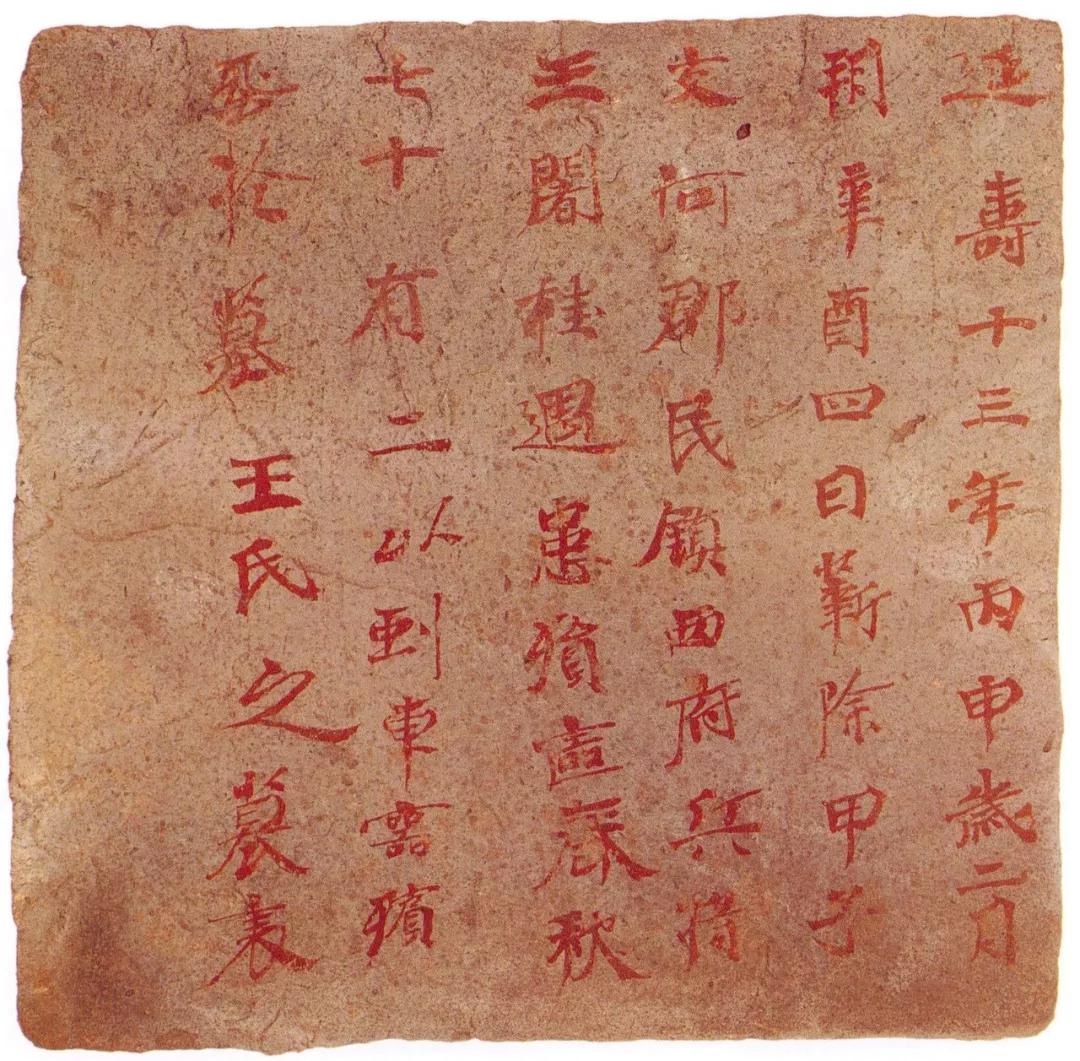 延壽十三年丙申歲二月
朔辛酉四日蘄除甲子
交河郡民鎮西府兵將
王闍桂遇患殞春秋
七十有二以車靈殯
葬於墓王氏之墓表